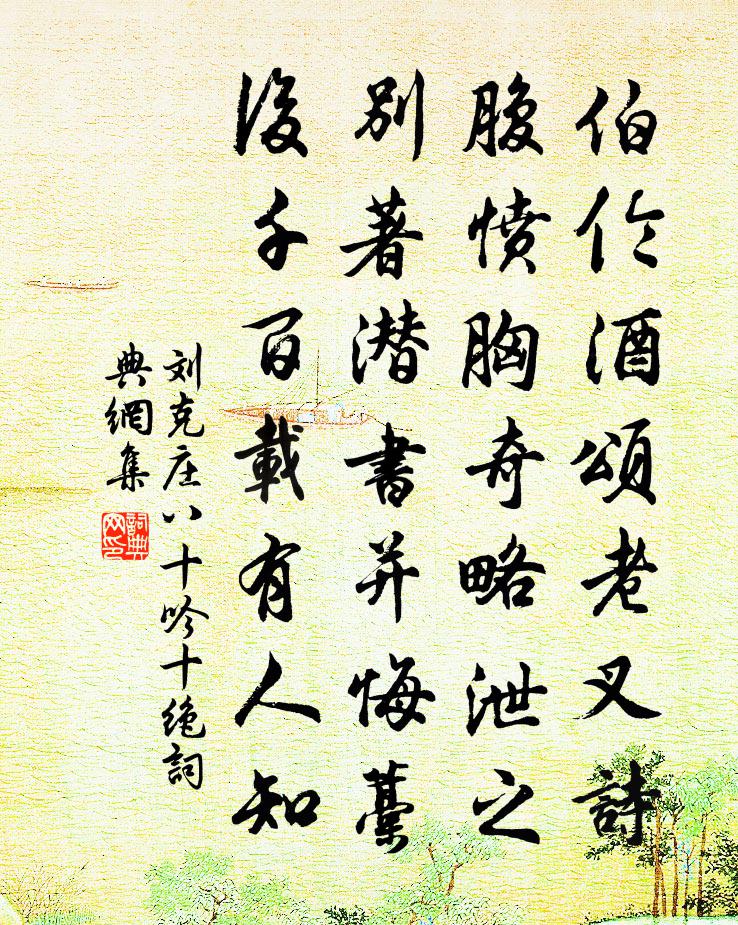 伯伦酒颂老叉詩
腹愤胸奇略泄之
别著潜書并悔藁
後千百載有人知
刘克庄八十吟十绝詞
典網集
詞典
网印